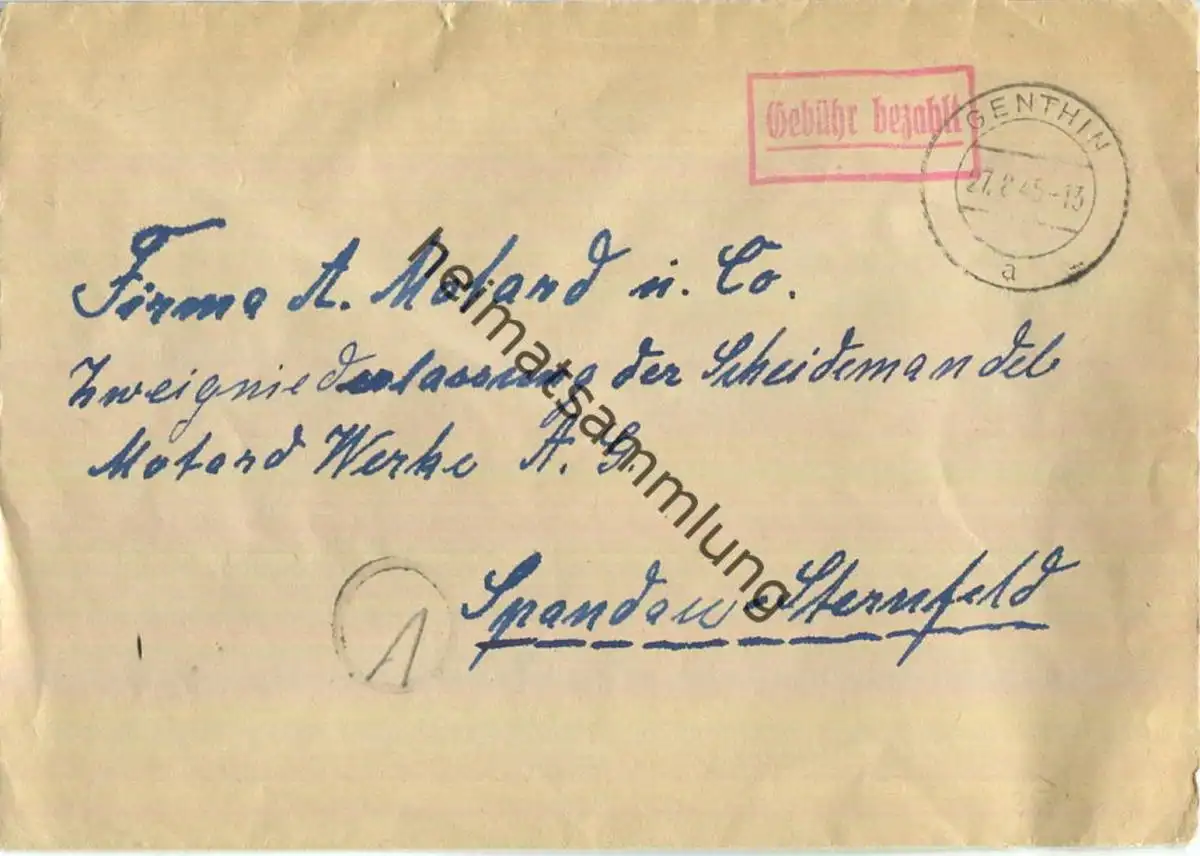 Gebühr bezahlt
GENTHIN
27.8.45-13
a
Firma A. Motard u. Co.
Zweigniederlassung der Scheidemandel
Motard Werke A. G.
Spandau-Sternfeld
A
heimatsammlung